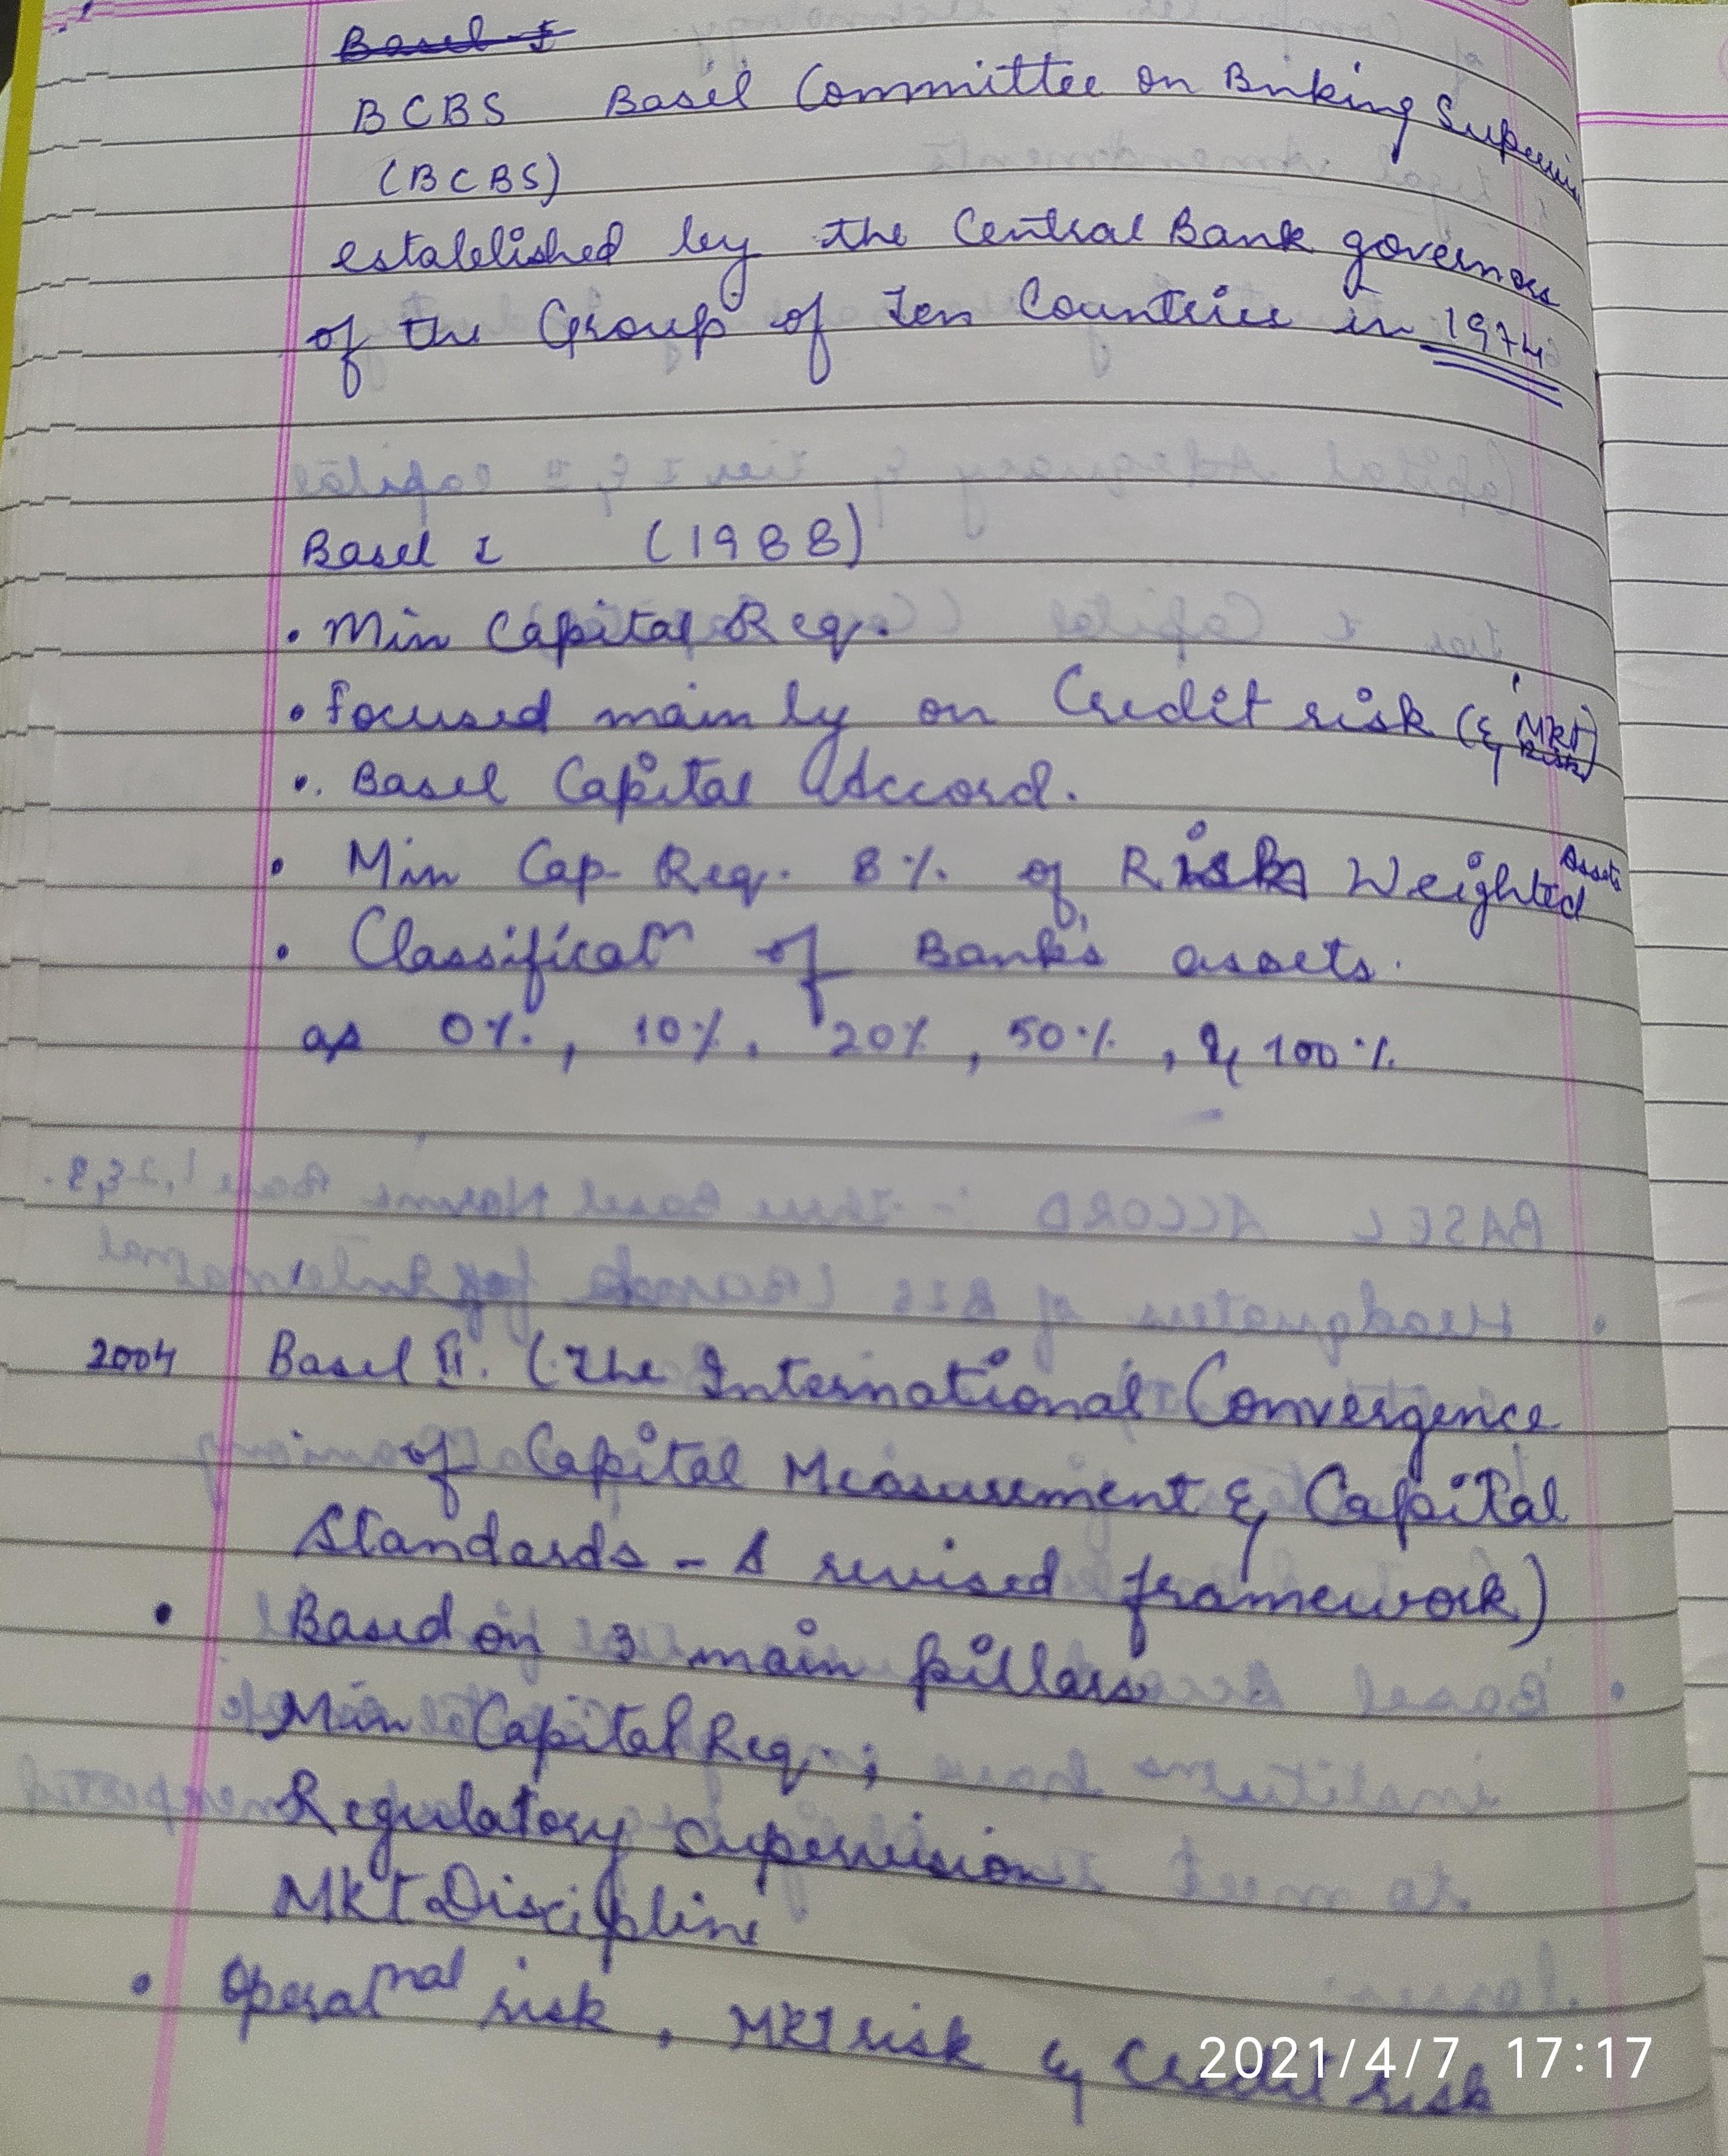 Basel I
BCBS Basel Committee on Bnking Supervis
(BCBS)
established by the Central Bank governors
of the Group of Ten Countries in 1974
Basel I (1988)
• Min Capital Req.
• focused mainly on Credit risk (& Mkt Risk)
• Basel Capital Accord.
• Min Cap Req. 8% of Risk Weighted Assets
• Classificatn of Bank's assets.
as 0%, 10%, 20%, 50%, & 100%
2004 Basel II. (The International Convergence
of Capital Measurement & Capital
Standards - A revised framework)
• Based on 3 main pillars
Min Capital Req. ;
Regulatory supervision
Mkt Discipline
• Operatnal risk, Mkt risk & Credit risk
2021/4/7 17:17